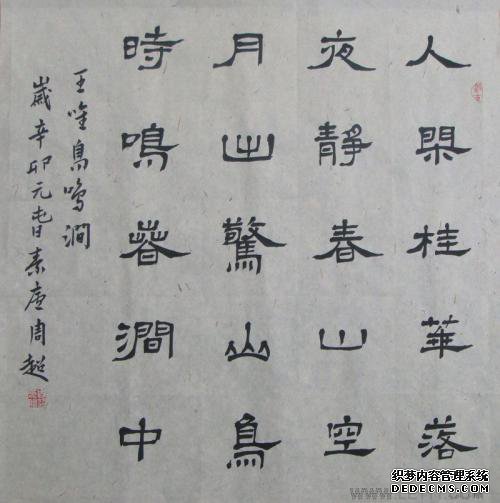 人閑桂華落
夜靜春山空
月出驚山鳥
時鳴春澗中
王唯鳥鳴澗
歲辛卯元旾素周超
织梦内容管理系统
DEDECMS.COM